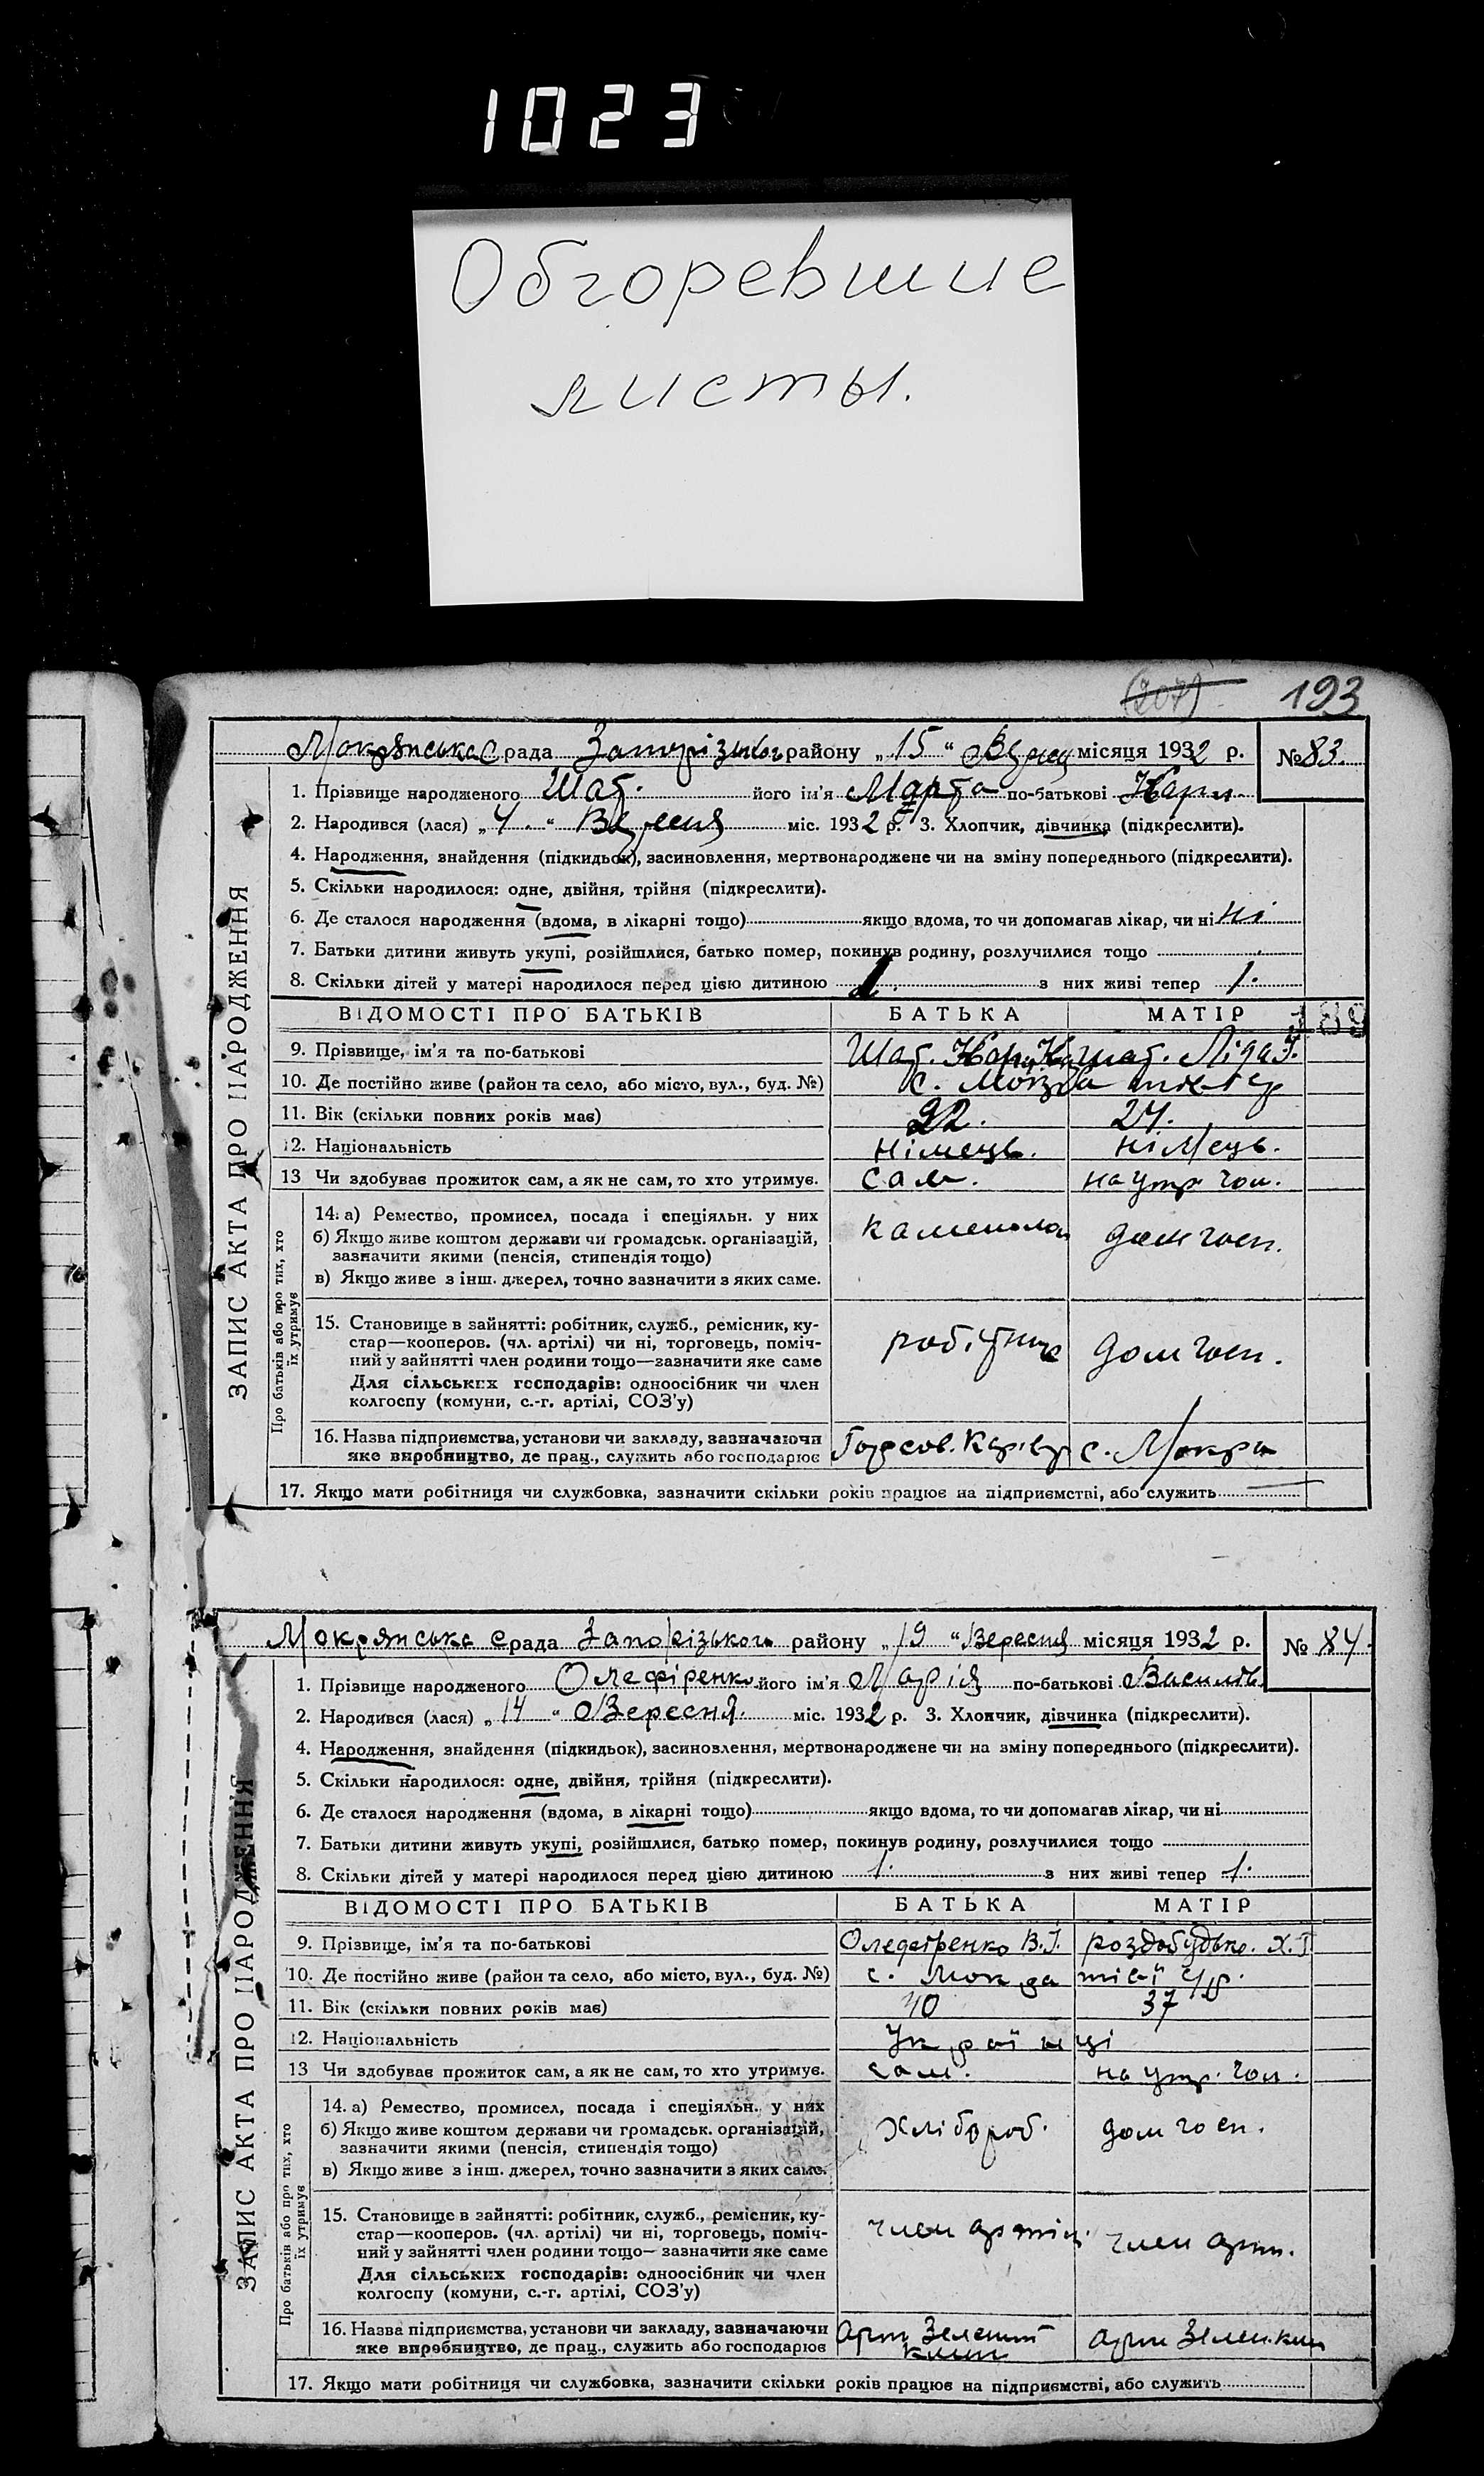 1023
Обгоревшие
листы.
(207) 193
Мокрянська с рада Запорізьког району „15“ Вересн місяця 1932 р. №83.
1. Прізвище народженого Шат. його ім'я Марта по-батькові Карл.
2. Народився (лася) „4.“ Вересня міс. 1932 р. 3. Хлопчик, дівчинка (підкреслити).
4. Народження, знайдення (підкидьок), засиновлення, мертвонароджене чи на зміну попереднього (підкреслити).
5. Скільки народилося: одне, двійня, трійня (підкреслити).
6. Де сталося народження (вдома, в лікарні тощо) якщо вдома, то чи допомагав лікар, чи ні ні
7. Батьки дитини живуть укупі, розійшлися, батько помер, покинув родину, розлучилися тощо
8. Скільки дітей у матері народилося перед цією дитиною 1. з них живі тепер 1.
ВІДОМОСТІ ПРО БАТЬКІВ БАТЬКА МАТІР
189
9. Прізвище, ім'я та по-батькові Шат. Шат. Ліда
10. Де постійно живе (район та село, або місто, вул., буд. №) с. Мокра
11. Вік (скільки повних років має) 22. 24.
12. Національність німець. німець.
13 Чи здобуває прожиток сам, а як не сам, то хто утримує. сам. на утр. чол.
14. а) Ремество, промисел, посада і спеціяльн. у них каменолом дом госп.
б) Якщо живе коштом держави чи громадськ. організацій,
зазначити якими (пенсія, стипендія тощо)
в) Якщо живе з інш. джерел, точно зазначити з яких саме.
15. Становище в зайнятті: робітник, служб., ремісник, ку-
стар—кооперов. (чл. артілі) чи ні, торговець, поміч- робітник дом госп.
ний у зайнятті член родини тощо—зазначити яке саме
Для сільських господарів: одноосібник чи член
колгоспу (комуни, с.-г. артілі, СОЗ'у)
16. Назва підприємства, установи чи закладу, зазначаючи
яке виробництво, де прац., служить або господарює с. Мокра
17. Якщо мати робітниця чи службовка, зазначити скільки років працює на підприємстві, або служить —
ЗАПИС АКТА ПРО НАРОДЖЕННЯ
Про батьків або про тих, хто
їх утримує
Мокрянська с рада Запорізького району „19“ Вересня місяця 1932 р. № 84.
1. Прізвище народженого Олефіренко його ім'я Марія по-батькові Василів.
2. Народився (лася) „14“ Вересня. міс. 1932 р. 3. Хлопчик, дівчинка (підкреслити).
4. Народження, знайдення (підкидьок), засиновлення, мертвонароджене чи на зміну попереднього (підкреслити).
5. Скільки народилося: одне, двійня, трійня (підкреслити).
6. Де сталося народження (вдома, в лікарні тощо) якщо вдома, то чи допомагав лікар, чи ні
7. Батьки дитини живуть укупі, розійшлися, батько помер, покинув родину, розлучилися тощо
8. Скільки дітей у матері народилося перед цією дитиною 1. з них живі тепер 1.
ВІДОМОСТІ ПРО БАТЬКІВ БАТЬКА МАТІР
9. Прізвище, ім'я та по-батькові Олефіренко В.І. роздобудько. Х.Т
10. Де постійно живе (район та село, або місто, вул., буд. №) с. Мокра тієї с/р.
11. Вік (скільки повних років має) 40 37
12. Національність Українці
13 Чи здобуває прожиток сам, а як не сам, то хто утримує. сам. на утр. чол.
14. а) Ремество, промисел, посада і спеціяльн. у них
б) Якщо живе коштом держави чи громадськ. організацій, хлібороб. дом госп.
зазначити якими (пенсія, стипендія тощо)
в) Якщо живе з інш. джерел, точно зазначити з яких саме.
15. Становище в зайнятті: робітник, служб., ремісник, ку-
стар—кооперов. (чл. артілі) чи ні, торговець, поміч- член артілі член арт.
ний у зайнятті член родини тощо—зазначити яке саме
Для сільських господарів: одноосібник чи член
колгоспу (комуни, с.-г. артілі, СОЗ'у)
16. Назва підприємства, установи чи закладу, зазначаючи Арт Зелений
яке виробництво, де прац., служить або господарює клин арт Зелен.клин
17. Якщо мати робітниця чи службовка, зазначити скільки років працює на підприємстві, або служить
ЗАПИС АКТА ПРО НАРОДЖЕННЯ
Про батьків або про тих, хто
їх утримує